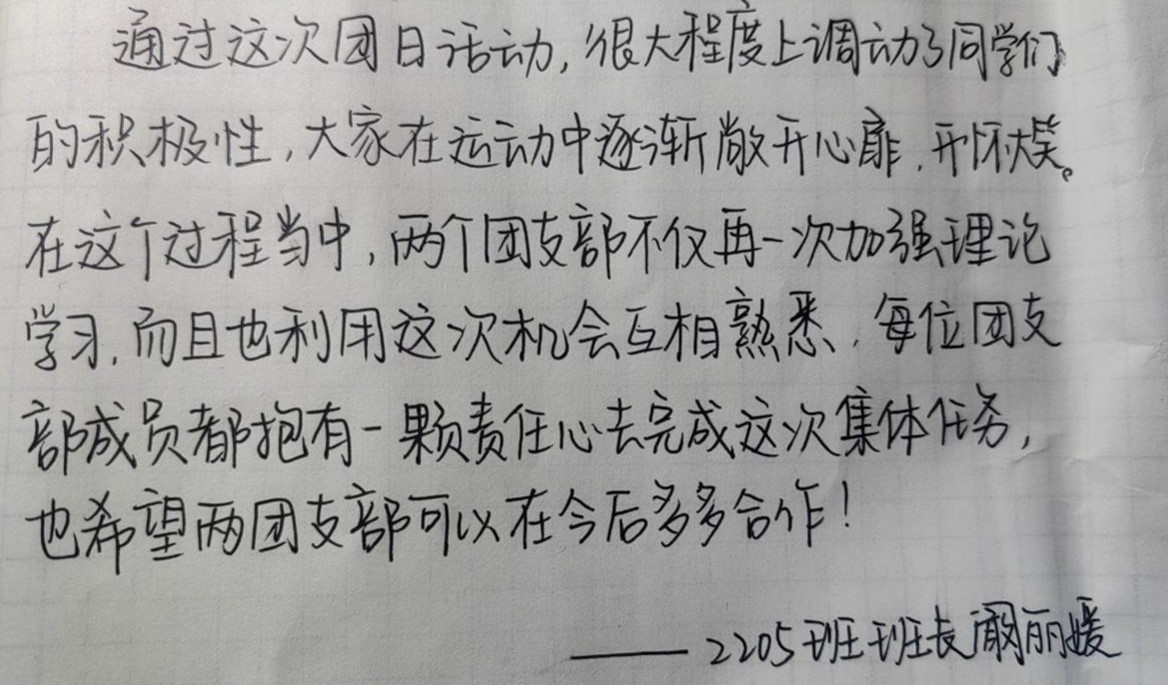 通过这次团日活动,很大程度上调动了同学们
的积极性,大家在运动中逐渐敞开心扉,开怀大笑。
在这个过程当中,两个团支部不仅再一次加强理论
学习,而且也利用这次机会互相熟悉,每位团支
部成员都抱有一颗责任心去完成这次集体任务,
也希望两团支部可以在今后多多合作!
——2205班班长阚丽媛